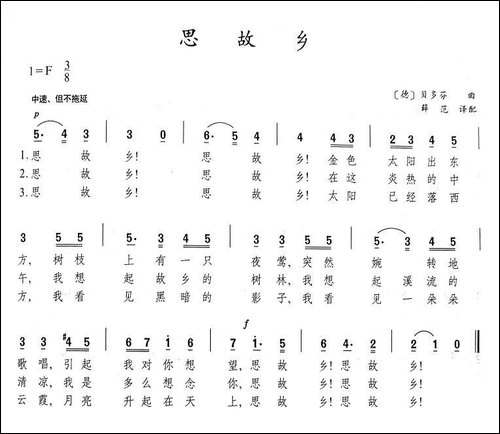 思故乡
1=F 3/8
中速、但不拖延
〔德〕贝多芬 曲
薛范 译配
p
5· 4 3 | 3 0 | 6· 5 4 | 4 4 3 | 2 3 4 5 |
1.思 故 乡! 思 故 乡! 金色 太阳出东
2.思 故 乡! 思 故 乡! 在这 炎热的中
3.思 故 乡! 思 故 乡! 太阳 已经落西
3 5 5 | 5· 3 4 5 | 3 5 5 | 5· 3 4 5 |
方, 树枝 上有一只 夜莺, 突然 婉 转地
午, 我想 起故乡的 树林, 我想 起溪流的
方, 我看 见黑暗的 影子, 我看 见一朵朵
f
3 3 #4 5 | 6 7 1 6 | 5· 4 3 | 3 4 2 | 2 1 0 |
歌唱, 引起 我对你想 望, 思故 乡! 思故 乡!
清凉, 我是 多么想念 你, 思故 乡! 思故 乡!
云霞, 月亮 升起在天 上, 思故 乡! 思故 乡!